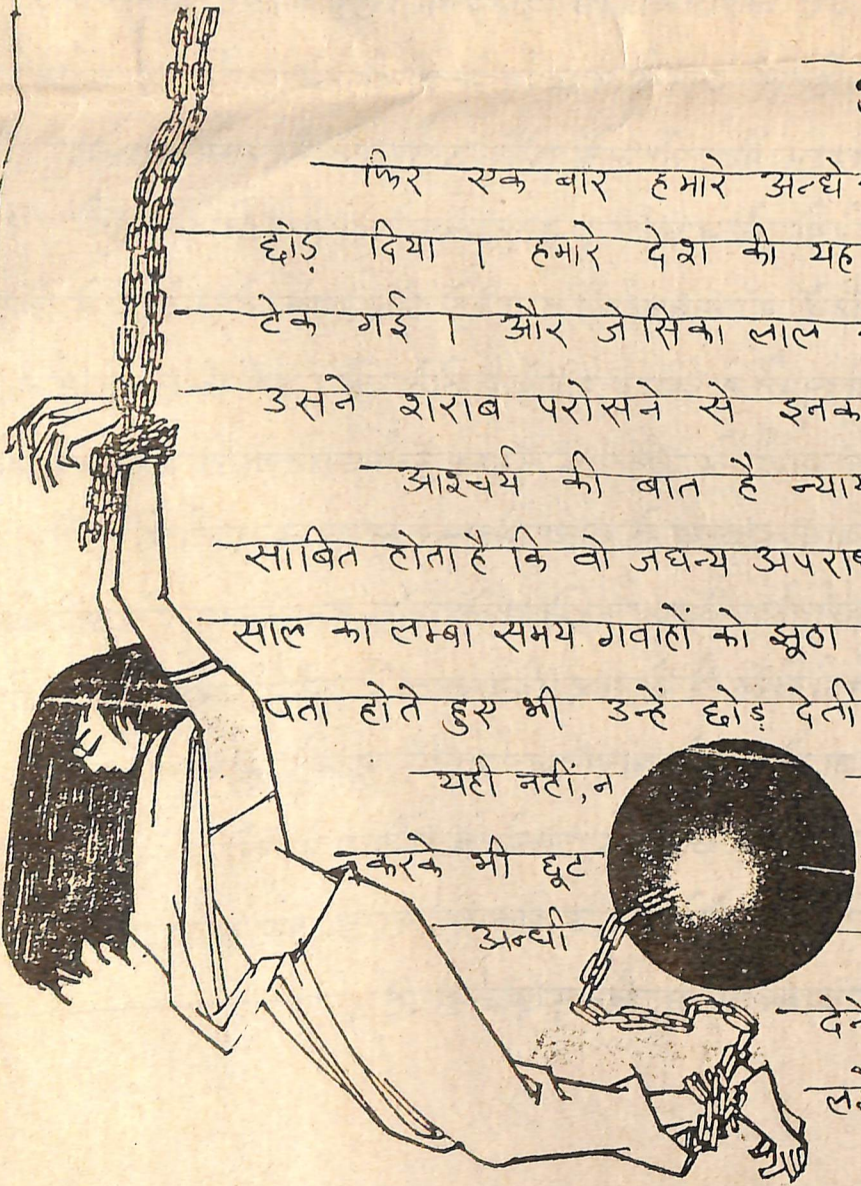 फिर एक बार हमारे अन्धे
छोड़ दिया । हमारे देश की यह
टेक गई । और जेसिका लाल
उसने शराब परोसने से इनक
आश्चर्य की बात है न्याय
साबित होता है कि वो जघन्य अपराध
साल का लम्बा समय गवाहों को झूठा
पता होते हुए भी उन्हें छोड़ देती
यही नहीं, न
करके भी छूट
अन्धी
देने